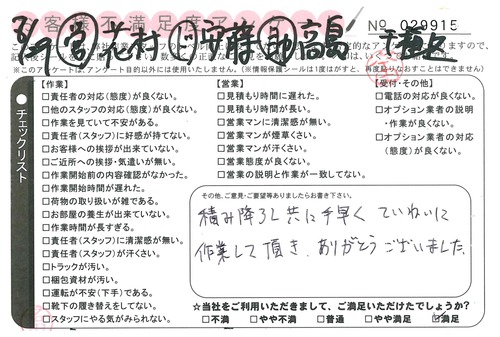 お客様不満足度アンケート
No 029915
花村 高島 千種区
※このアンケートは、アンケート目的以外には使用いたしません。(※情報保護シールは1度がはすと、再度貼りなおすことはできません)
チェックリスト
【作業】
□責任者の対応(態度)が良くない。
□他のスタッフの対応(態度)が良くない。
□作業を見ていて不安がある。
□責任者(スタッフ)に好感が持てない。
□お客様への挨拶が出来ていない。
□ご近所への挨拶・気遣いが無い。
□作業開始前の内容確認がなかった。
□作業開始時間が遅れた。
□荷物の取り扱いが雑である。
□お部屋の養生が出来ていない。
□作業時間が長すぎる。
□責任者(スタッフ)に清潔感が無い。
□責任者(スタッフ)が汗くさい。
□トラックが汚い。
□梱包資材が汚い。
□運転が不安(下手)である。
□靴下の履き替えをしてない。
□スタッフにやる気がみられない。
【営業】
□見積もり時間に遅れた。
□見積もり時間が長い。
□営業マンに清潔感が無い。
□営業マンが煙草くさい。
□営業マンが汗くさい。
□営業態度が良くない。
□営業の説明と作業が一致してない。
【受付・その他】
□電話の対応が良くない。
□オプション業者の説明
・作業が良くない。
□オプション業者の対応
(態度)が良くない。
その他、ご意見・ご要望等ありましたらお書き下さい。
積み降ろし共に手早く ていねいに
作業して頂き、ありがとうございました。
☆当社をご利用いただきまして、ご満足いただけたでしょうか?
□不満 □やや不満 □普通 □やや満足 □満足